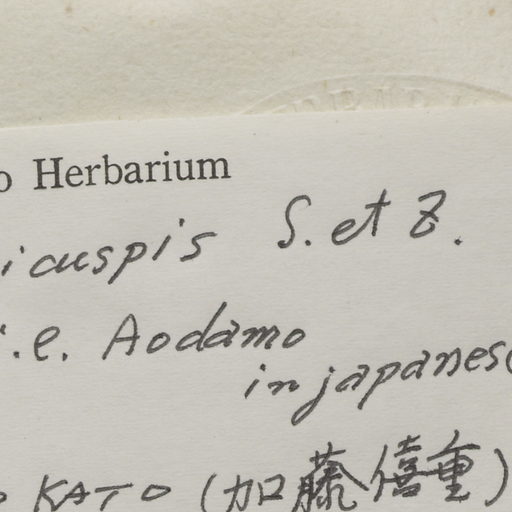 o Herbarium
icuspis S. et Z.
i.e. Aodamo
in japanes
o KATO (加藤僖重)